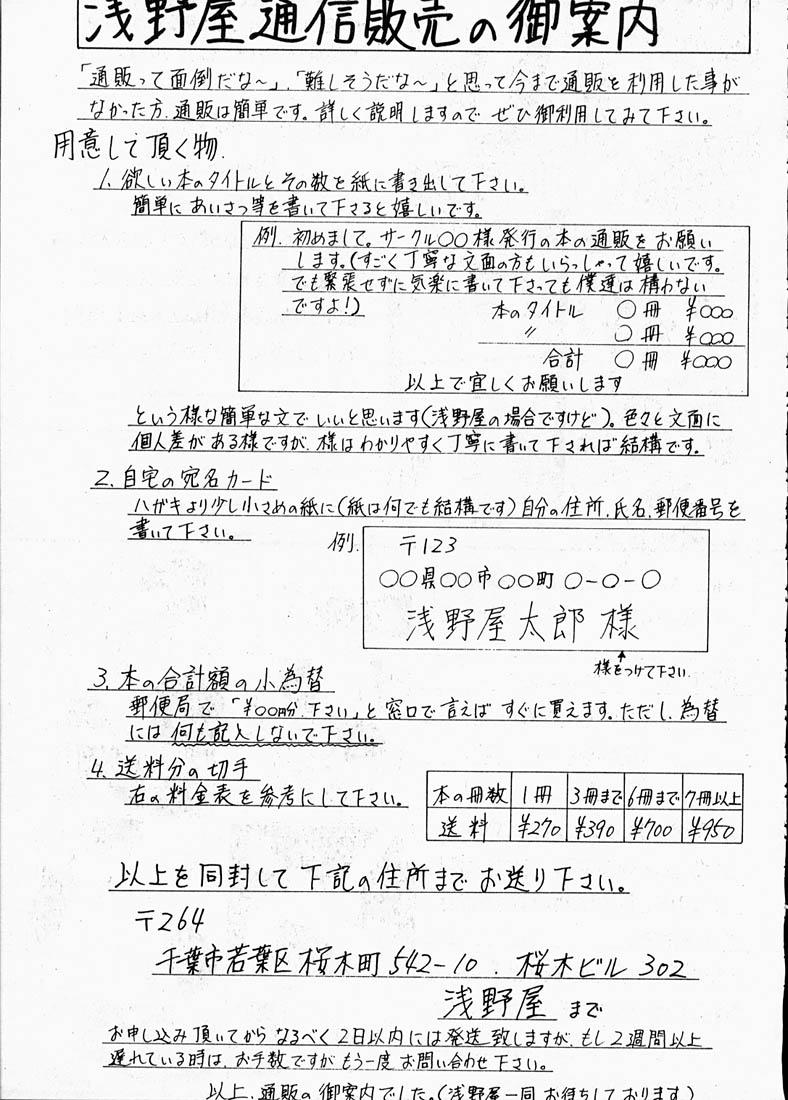 浅野屋通信販売の御案内
「通販って面倒だな〜」.「難しそうだな〜」と思って今まで通販を利用した事が
なかった方.通販は簡単です。詳しく説明しますので ぜひ御利用してみて下さい。
用意して頂く物.
1.欲しい本のタイトルとその数を紙に書き出して下さい。
簡単にあいさつ等を書いて下さると嬉しいです。
例.初めまして。サークル○○様発行の本の通販をお願い
します。(すごく丁寧な文面の方もいらっしゃって嬉しいです。
でも緊張せずに気楽に書いて下さっても僕達は構わない
ですよ!)
本のタイトル ○冊 ¥○○○
〃 ○冊 ¥○○○
合計 ○冊 ¥○○○
以上で宜しくお願いします
という様な簡単な文でいいと思います(浅野屋の場合ですけど)。色々と文面に
個人差がある様ですが、様はわかりやすく丁寧に書いて下されば結構です。
2.自宅の宛名カード
ハガキより少し小さめの紙に(紙は何でも結構です)自分の住所.氏名.郵便番号を
書いて下さい。
例.
〒123
○○県○○市○○町○-○-○
浅野屋太郎 様
様をつけて下さい.
3.本の合計額の小為替
郵便局で「¥○○円分.下さい」と窓口で言えば すぐに買えます。ただし.為替
には何も記入しないで下さい。
4.送料分の切手
右の料金表を参考にして下さい。
本の冊数 1冊 3冊まで 6冊まで 7冊以上
送料 ¥270 ¥390 ¥700 ¥950
以上を同封して下記の住所までお送り下さい。
〒264
千葉市若葉区桜木町542-10.桜木ビル302
浅野屋 まで
お申し込み頂いてから なるべく2日以内には発送致しますが、もし2週間以上
遅れている時は、お手数ですがもう一度お問い合わせ下さい。
以上.通販の御案内でした。(浅野屋一同お待ちしております)